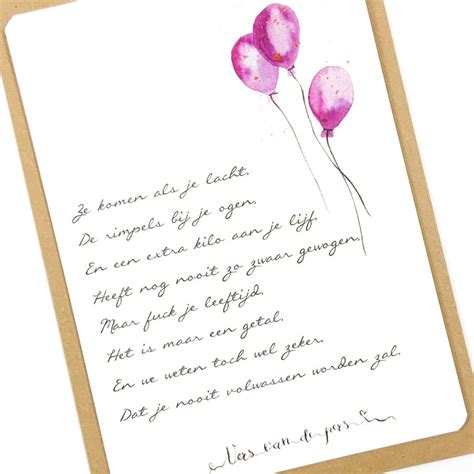 Ze komen als je lacht,
De rimpels bij je ogen.
En een extra kilo aan je lijf.
Heeft nog nooit zo zwaar gewogen.
Maar fuck je leeftijd.
Het is maar een getal.
En we weten toch wel zeker.
Dat je nooit volwassen worden zal.
Vers van de pers